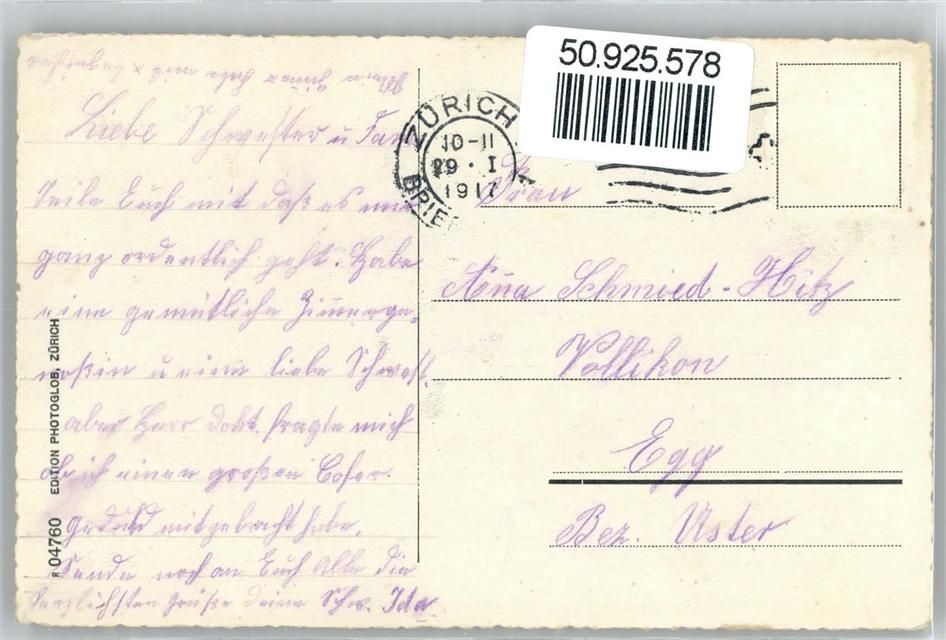 50.925.578
ZÜRICH
10-11
29.I
1917
BRIE
Liebe Schwester u Fam
Teile Euch mit daß es mir
ganz ordentlich geht. Habe
eine gemütliche Zimerge-
noßin u eine liebe Schwest.
aber Herr Dokt. fragte mich
ob ich einen großen Kofer
Geduld mitgebracht habe.
Sende noch an Euch Alle die
herzlichsten Grüße deine Schw. Ida
Frau
Aña Schmied-Hitz
Vollikon
Egg
Bez. Uster
R 04760 EDITION PHOTOGLOB, ZÜRICH